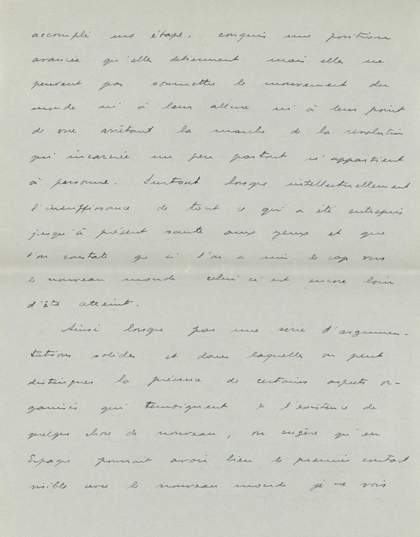 accompli une étape, conquis une position
avancée qu'elle détiennent mais elle ne
peuvent pas soumettre le mouvement du
monde ni à leur allure ni à leur point
de vue arrêtant la marche de la révolution
qui incarnée un peu partout n'appartient
à personne. Surtout lorsque intellectuellement
l'insuffisance de tout ce qui a été entrepris
jusqu'à présent saute aux yeux et que
l'on constate que si l'on a mis le cap vers
le nouveau monde celui ci est encore loin
d'être atteint.
Ainsi lorsque par une serie d'argumen-
tations solides et dans laquelle on peut
distinguer la présence de certains aspects or-
ganisés qui temoignent de l'existence de
quelque chose de nouveau, on sugère qu'en
Espagne pourrait avoir lieu le premier contact
visible avec le nouveau monde je ne vois